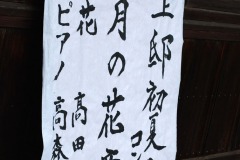 上邸初夏コン
月の花
花 高田
ピアノ 高森